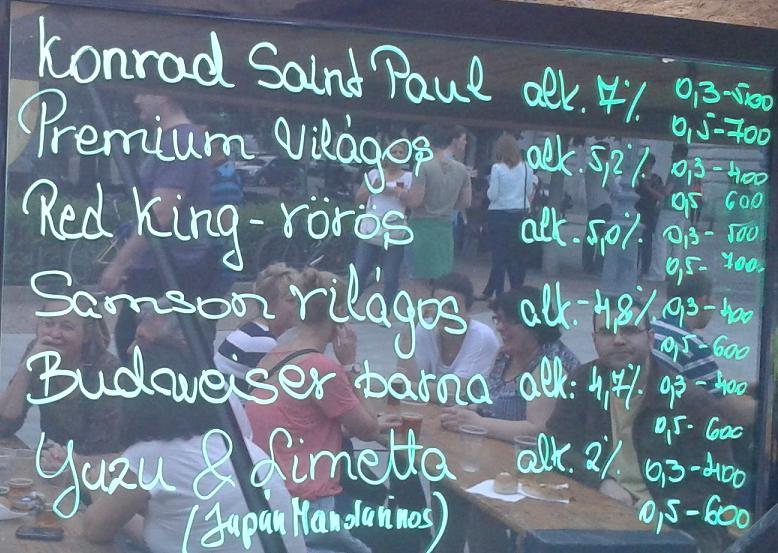 Konrad Saint Paul alk. 7% 0,3-500
0,5-700
Premium Világos alk. 5,2% 0,3-400
0,5 600
Red King-vörös alk. 5,0% 0,3-500
0,5-700.
Samson világos alk.-4,8% 0,3-400
0,5-600
Budweiser barna alk: 4,7% 0,3-400
0,5-600
Yuzu & Limetta alk. 2% 0,3-400
(Japán Mandarinos) 0,5-600